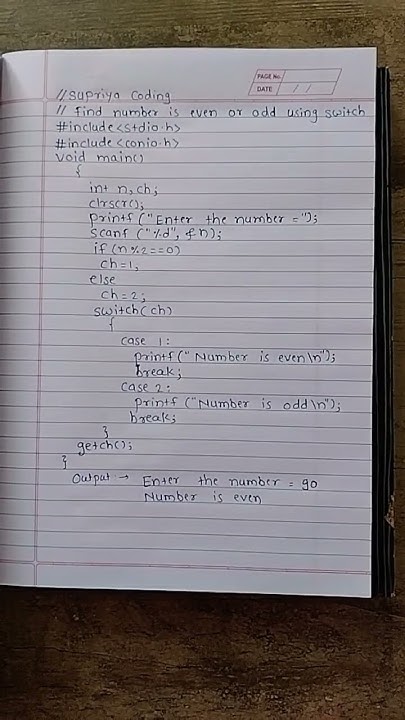 PAGE No.
DATE / /
//Supriya Coding
// find number is even or odd using switch
#include<stdio.h>
#include<conio.h>
void main()
{
int n,ch;
clrscr();
printf ("Enter the number =");
scanf ("%d", &n);
if (n%2==0)
ch=1;
else
ch=2;
switch(ch)
{
case 1:
printf (" Number is even\n");
break;
case 2:
printf ("Number is odd\n");
break;
}
getch();
}
Output → Enter the number = 90
Number is even